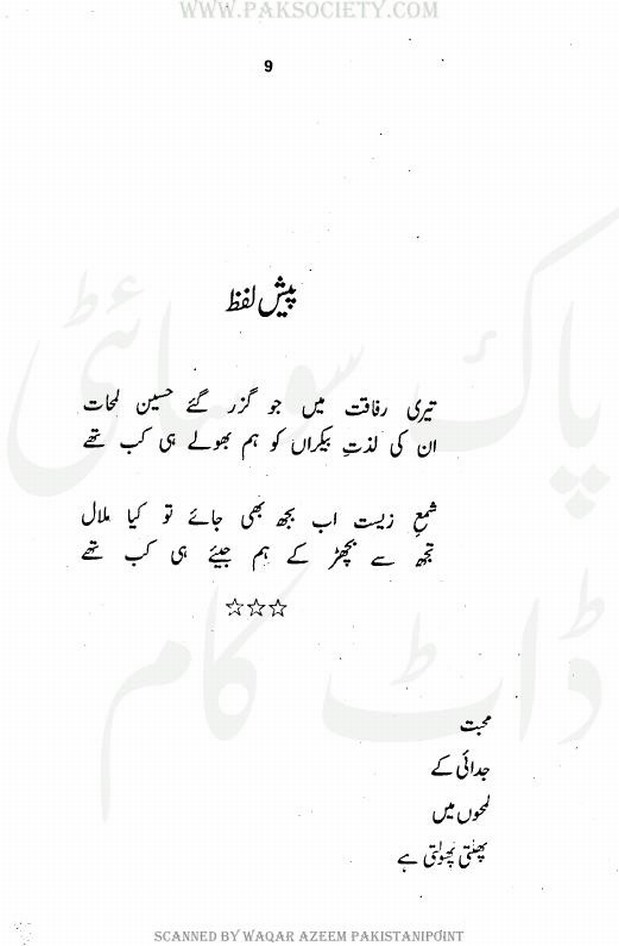 WWW.PAKSOCIETY.COM
9
پیش لفظ
تیری رفاقت میں جو گزر گئے حسین لمحات
ان کی لذتِ بیکراں کو ہم بھولے ہی کب تھے
شمعِ زیست اب بجھ بھی جائے تو کیا ملال
تجھ سے بچھڑ کے ہم جیئے ہی کب تھے
☆☆☆
محبت
جدائی کے
لمحوں میں
پھلتی پھولتی ہے
پاک سوسائٹی
ڈاٹ کام
SCANNED BY WAQAR AZEEM PAKISTANIPOINT